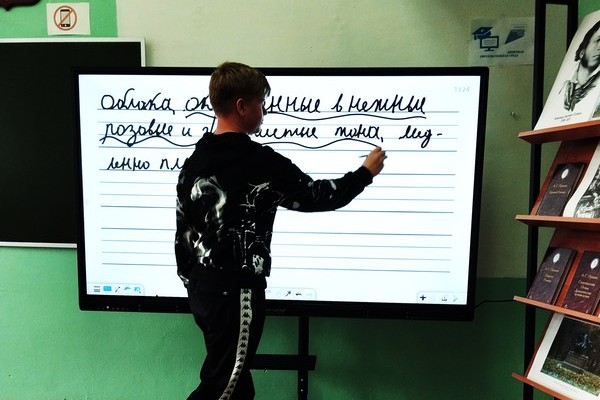 Облака, ок нные в нежные
розовые и з листые тона, мед-
ленно пл